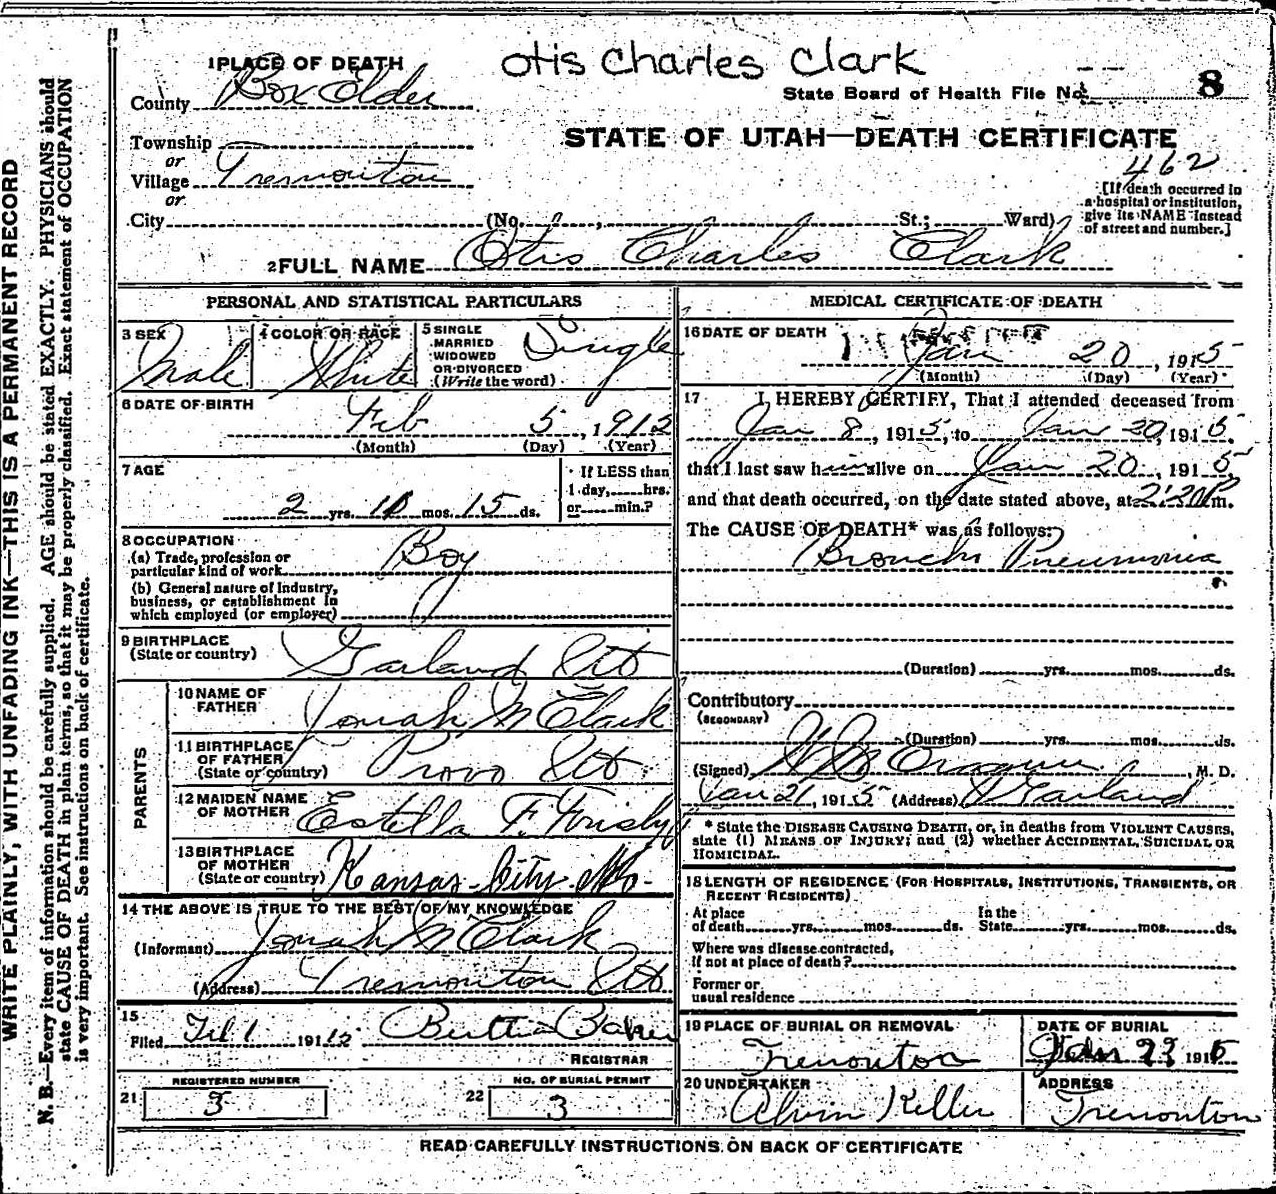 WRITE PLAINLY, WITH UNFADING INK—THIS IS A PERMANENT RECORD
N. B.—Every item of information should be carefully supplied. AGE should be stated EXACTLY. PHYSICIANS should
state CAUSE OF DEATH in plain terms, so that it may be properly classified. Exact statement of OCCUPATION
is very important. See instructions on back of certificate.
otis Charles Clark
1 PLACE OF DEATH
County Box Elder
State Board of Health File No. 8
Township
or
Village Tremonton
or
STATE OF UTAH—DEATH CERTIFICATE
462
[If death occurred in
a hospital or institution,
give its NAME instead
of street and number.]
City (No. , St.; Ward)
2 FULL NAME Otis Charles Clark
PERSONAL AND STATISTICAL PARTICULARS
3 SEX
Male
4 COLOR OR RACE
White
5 SINGLE
MARRIED
WIDOWED
OR DIVORCED
(Write the word)
Single
6 DATE OF BIRTH
Feb 5, 1912
(Month) (Day) (Year)
7 AGE
2 yrs. 11 mos. 15 ds.
If LESS than
1 day, hrs.
or min.?
8 OCCUPATION
(a) Trade, profession or
particular kind of work Boy
(b) General nature of industry,
business, or establishment in
which employed (or employer)
9 BIRTHPLACE
(State or country) Garland Ut
PARENTS
10 NAME OF
FATHER Jonah M Clark
11 BIRTHPLACE
OF FATHER
(State or country) Provo Ut
12 MAIDEN NAME
OF MOTHER Estella F. Frisby
13 BIRTHPLACE
OF MOTHER
(State or country) Kansas City Mo.
14 THE ABOVE IS TRUE TO THE BEST OF MY KNOWLEDGE
(Informant) Jonah M Clark
(Address) Tremonton Ut
15
Filed Feb 1 191
REGISTRAR
REGISTERED NUMBER
21
NO. OF BURIAL PERMIT
22 3
MEDICAL CERTIFICATE OF DEATH
16 DATE OF DEATH
Jan 20, 1915
(Month) (Day) (Year)
17 I HEREBY CERTIFY, That I attended deceased from
Jan 8, 1915, to Jan 20, 1915,
that I last saw him alive on Jan 20, 1915,
and that death occurred, on the date stated above, at 2:20 P m.
The CAUSE OF DEATH* was as follows:
Broncho Pneumonia
(Duration) yrs. mos. ds.
Contributory
(SECONDARY)
(Duration) yrs. mos. ds.
(Signed) , M. D.
Jan 21, 1915 (Address) Garland
* State the DISEASE CAUSING DEATH, or, in deaths from VIOLENT CAUSES,
state (1) MEANS OF INJURY; and (2) whether ACCIDENTAL, SUICIDAL OR
HOMICIDAL.
18 LENGTH OF RESIDENCE (FOR HOSPITALS, INSTITUTIONS, TRANSIENTS, OR
RECENT RESIDENTS)
At place
of death yrs. mos. ds.
In the
State yrs. mos. ds.
Where was disease contracted,
if not at place of death?
Former or
usual residence
19 PLACE OF BURIAL OR REMOVAL
Tremonton
DATE OF BURIAL
Jan 1915
20 UNDERTAKER
Alvin Keller
ADDRESS
Tremonton
READ CAREFULLY INSTRUCTIONS ON BACK OF CERTIFICATE